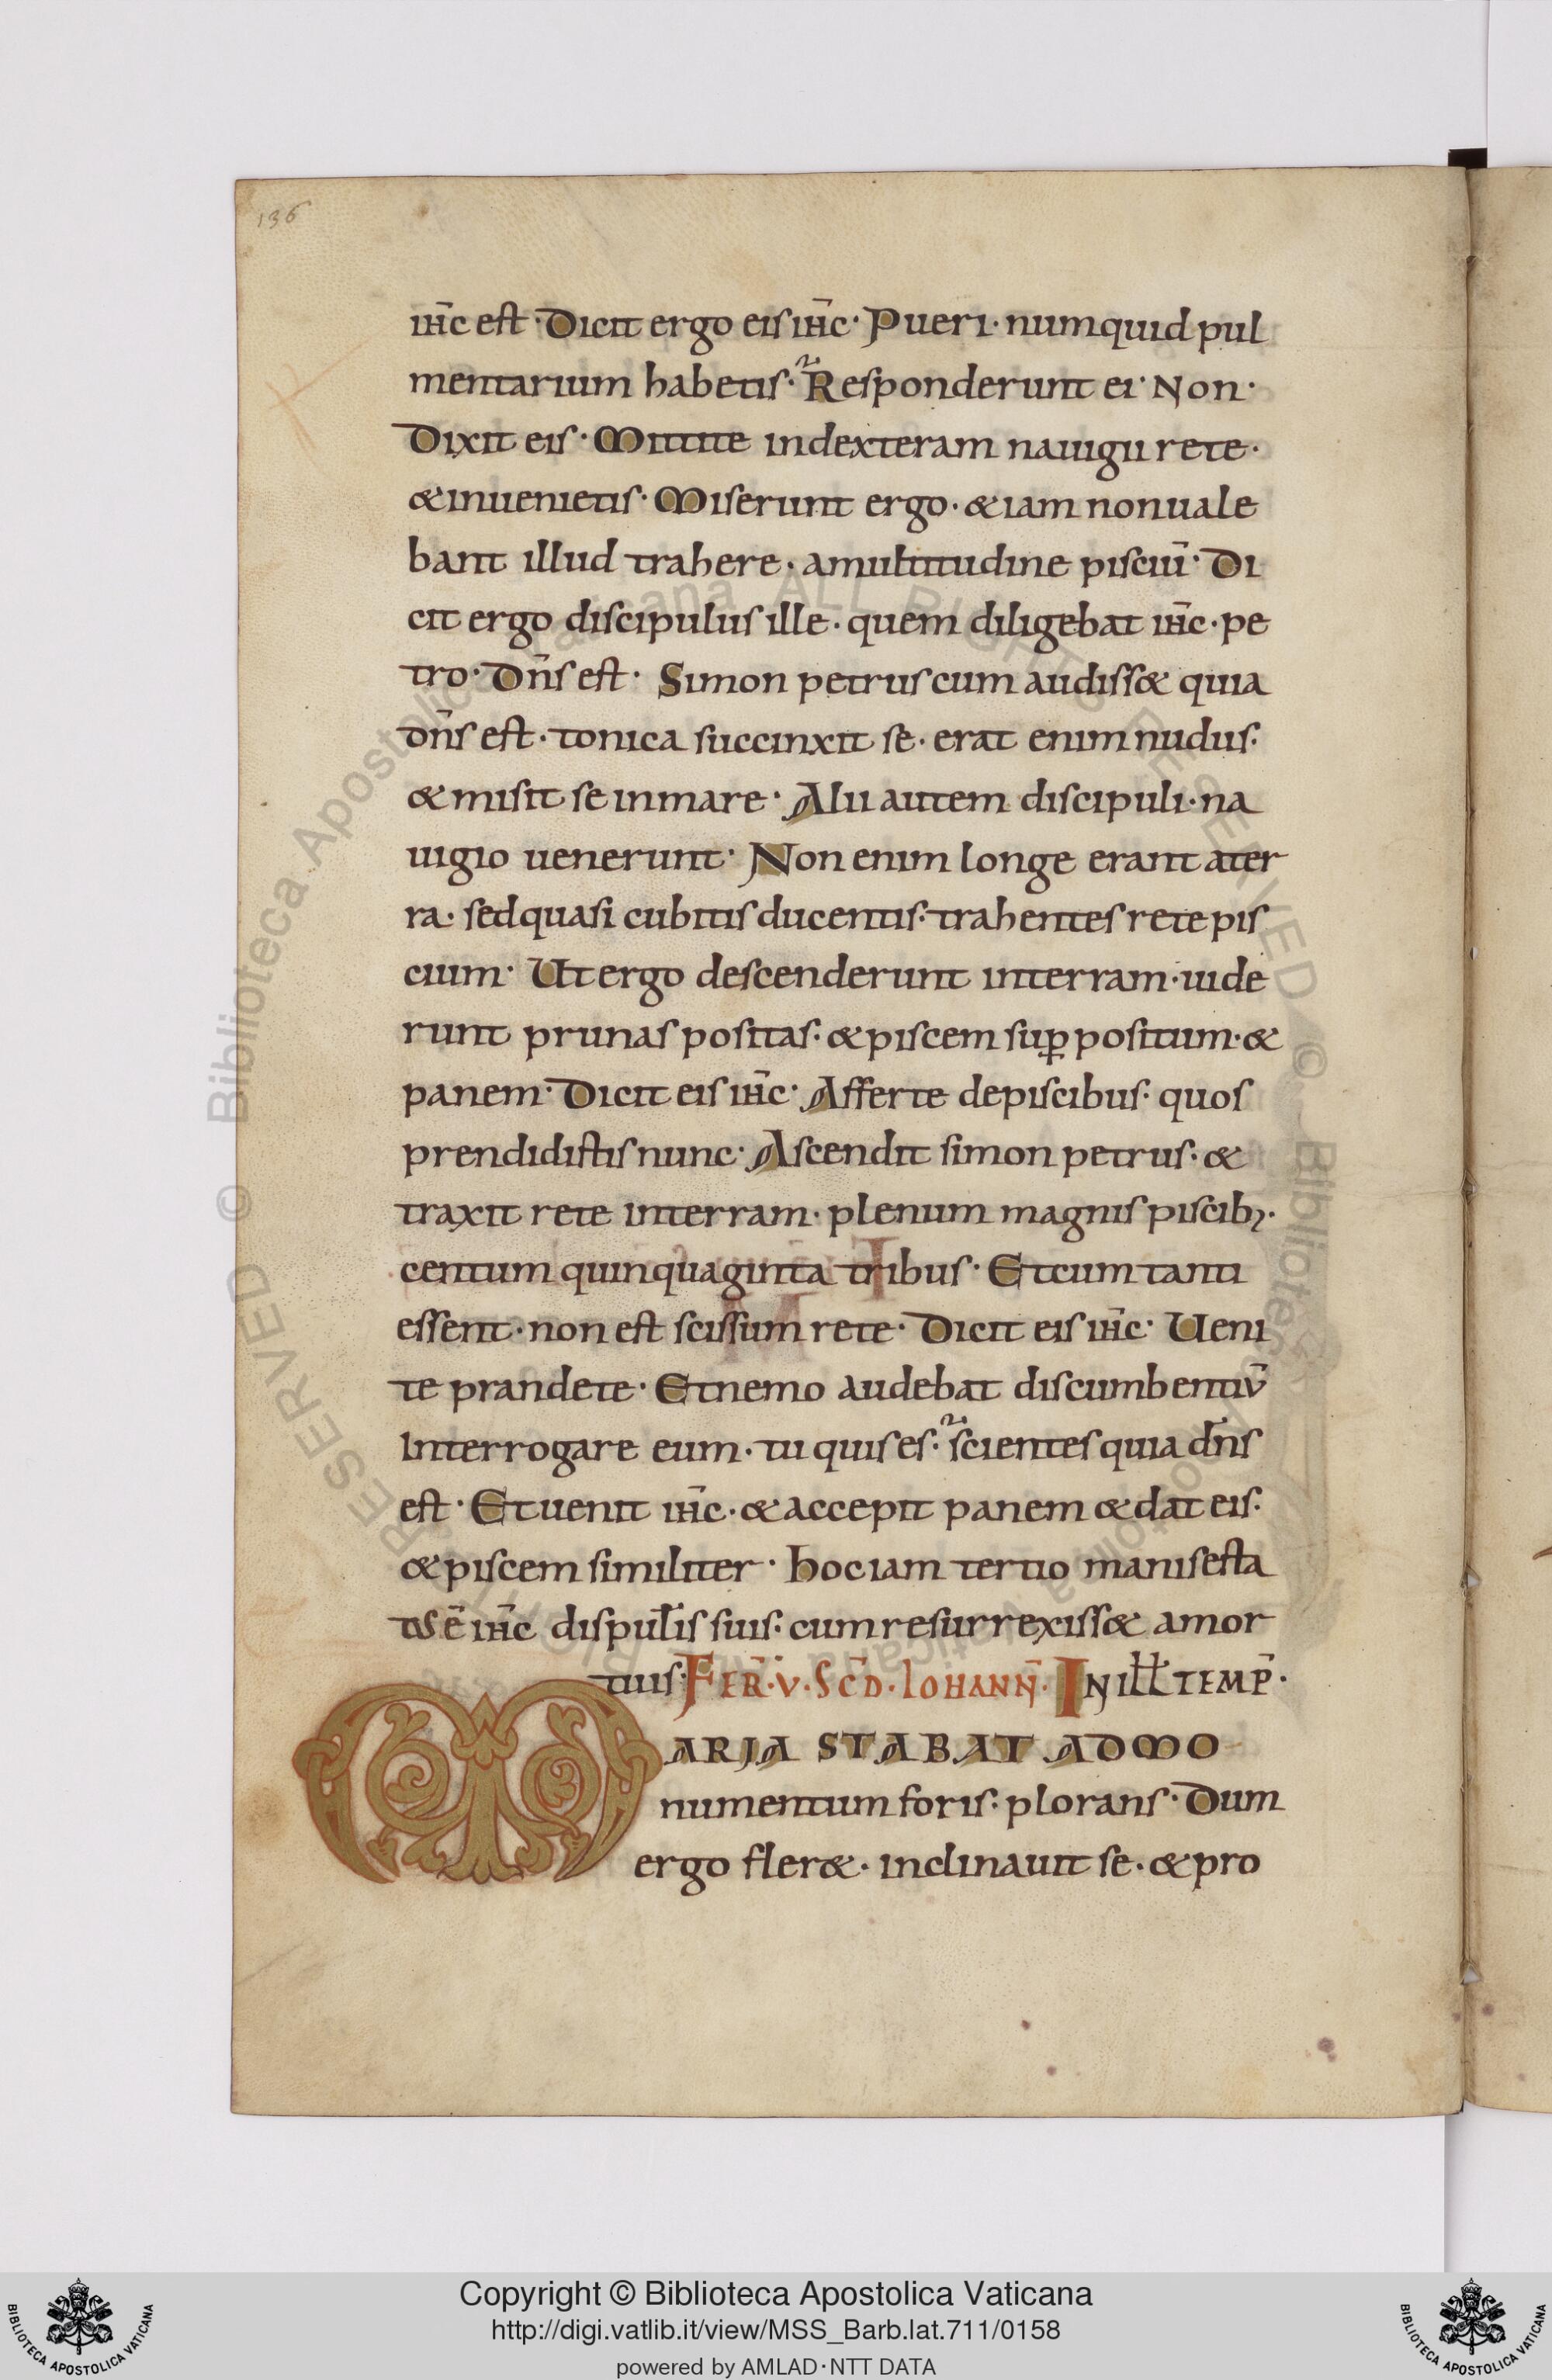 136
ih̄c est· Dicit ergo eis ih̄c· Pueri· numquid pul
mentarium habetis· Responderunt ei· Non·
Dixit eis· Mittite indexteram nauigii rete·
&inuenietis· Miserunt ergo· &iam nonuale
bant illud trahere· amultitudine pisciū· Di
cit ergo discipulus ille· quem diligebat ih̄c· pe
tro· Dn̄s est· Simon petrus cum audiss& quia
dn̄s est· tonica succinxit se· erat enim nudus·
&misit se inmare· Alii autem discipuli· na
uigio uenerunt· Non enim longe erant ater
ra· sedquasi cubitis ducentis· trahentes rete pis
cium· Ut ergo descenderunt interram· uide
runt prunas positas· &piscem suꝑ positum· &
panem· Dicit eis ih̄c· Afferte depiscibus· quos
prendidistis nunc· Ascendit simon petrus· &
traxit rete interram· plenum magnis piscib;·
centum quinquaginta tribus· Etcum tanti
essent· non est scissum rete· Dicit eis ih̄c· Ueni
te prandete· Etnemo audebat discumbentiū
Interrogare eum· tu quis es· scientes quia dn̄s
est· Etuenit ih̄c· &accepit panem &dat eis·
&piscem similiter· hociam tertio manifesta
tus ē ih̄c dispul̄is suis· cumresurrexiss& amor
tuis· FER̄· V· SC̄D· IOHANN̄· IN ILL̄ TEMP̄·
MARIA STABAT ADMO
numentum foris· plorans· Dum
ergo fler&· inclinauit se· &pro
© Biblioteca Apostolica Vaticana ALL RIGHTS RESERVED © Biblioteca Apostolica Vaticana ALL RIGHTS RESERVED
Copyright © Biblioteca Apostolica Vaticana
http://digi.vatlib.it/view/MSS_Barb.lat.711/0158
powered by AMLAD·NTT DATA
BIBLIOTECA APOSTOLICA VATICANA
BIBLIOTECA APOSTOLICA VATICANA